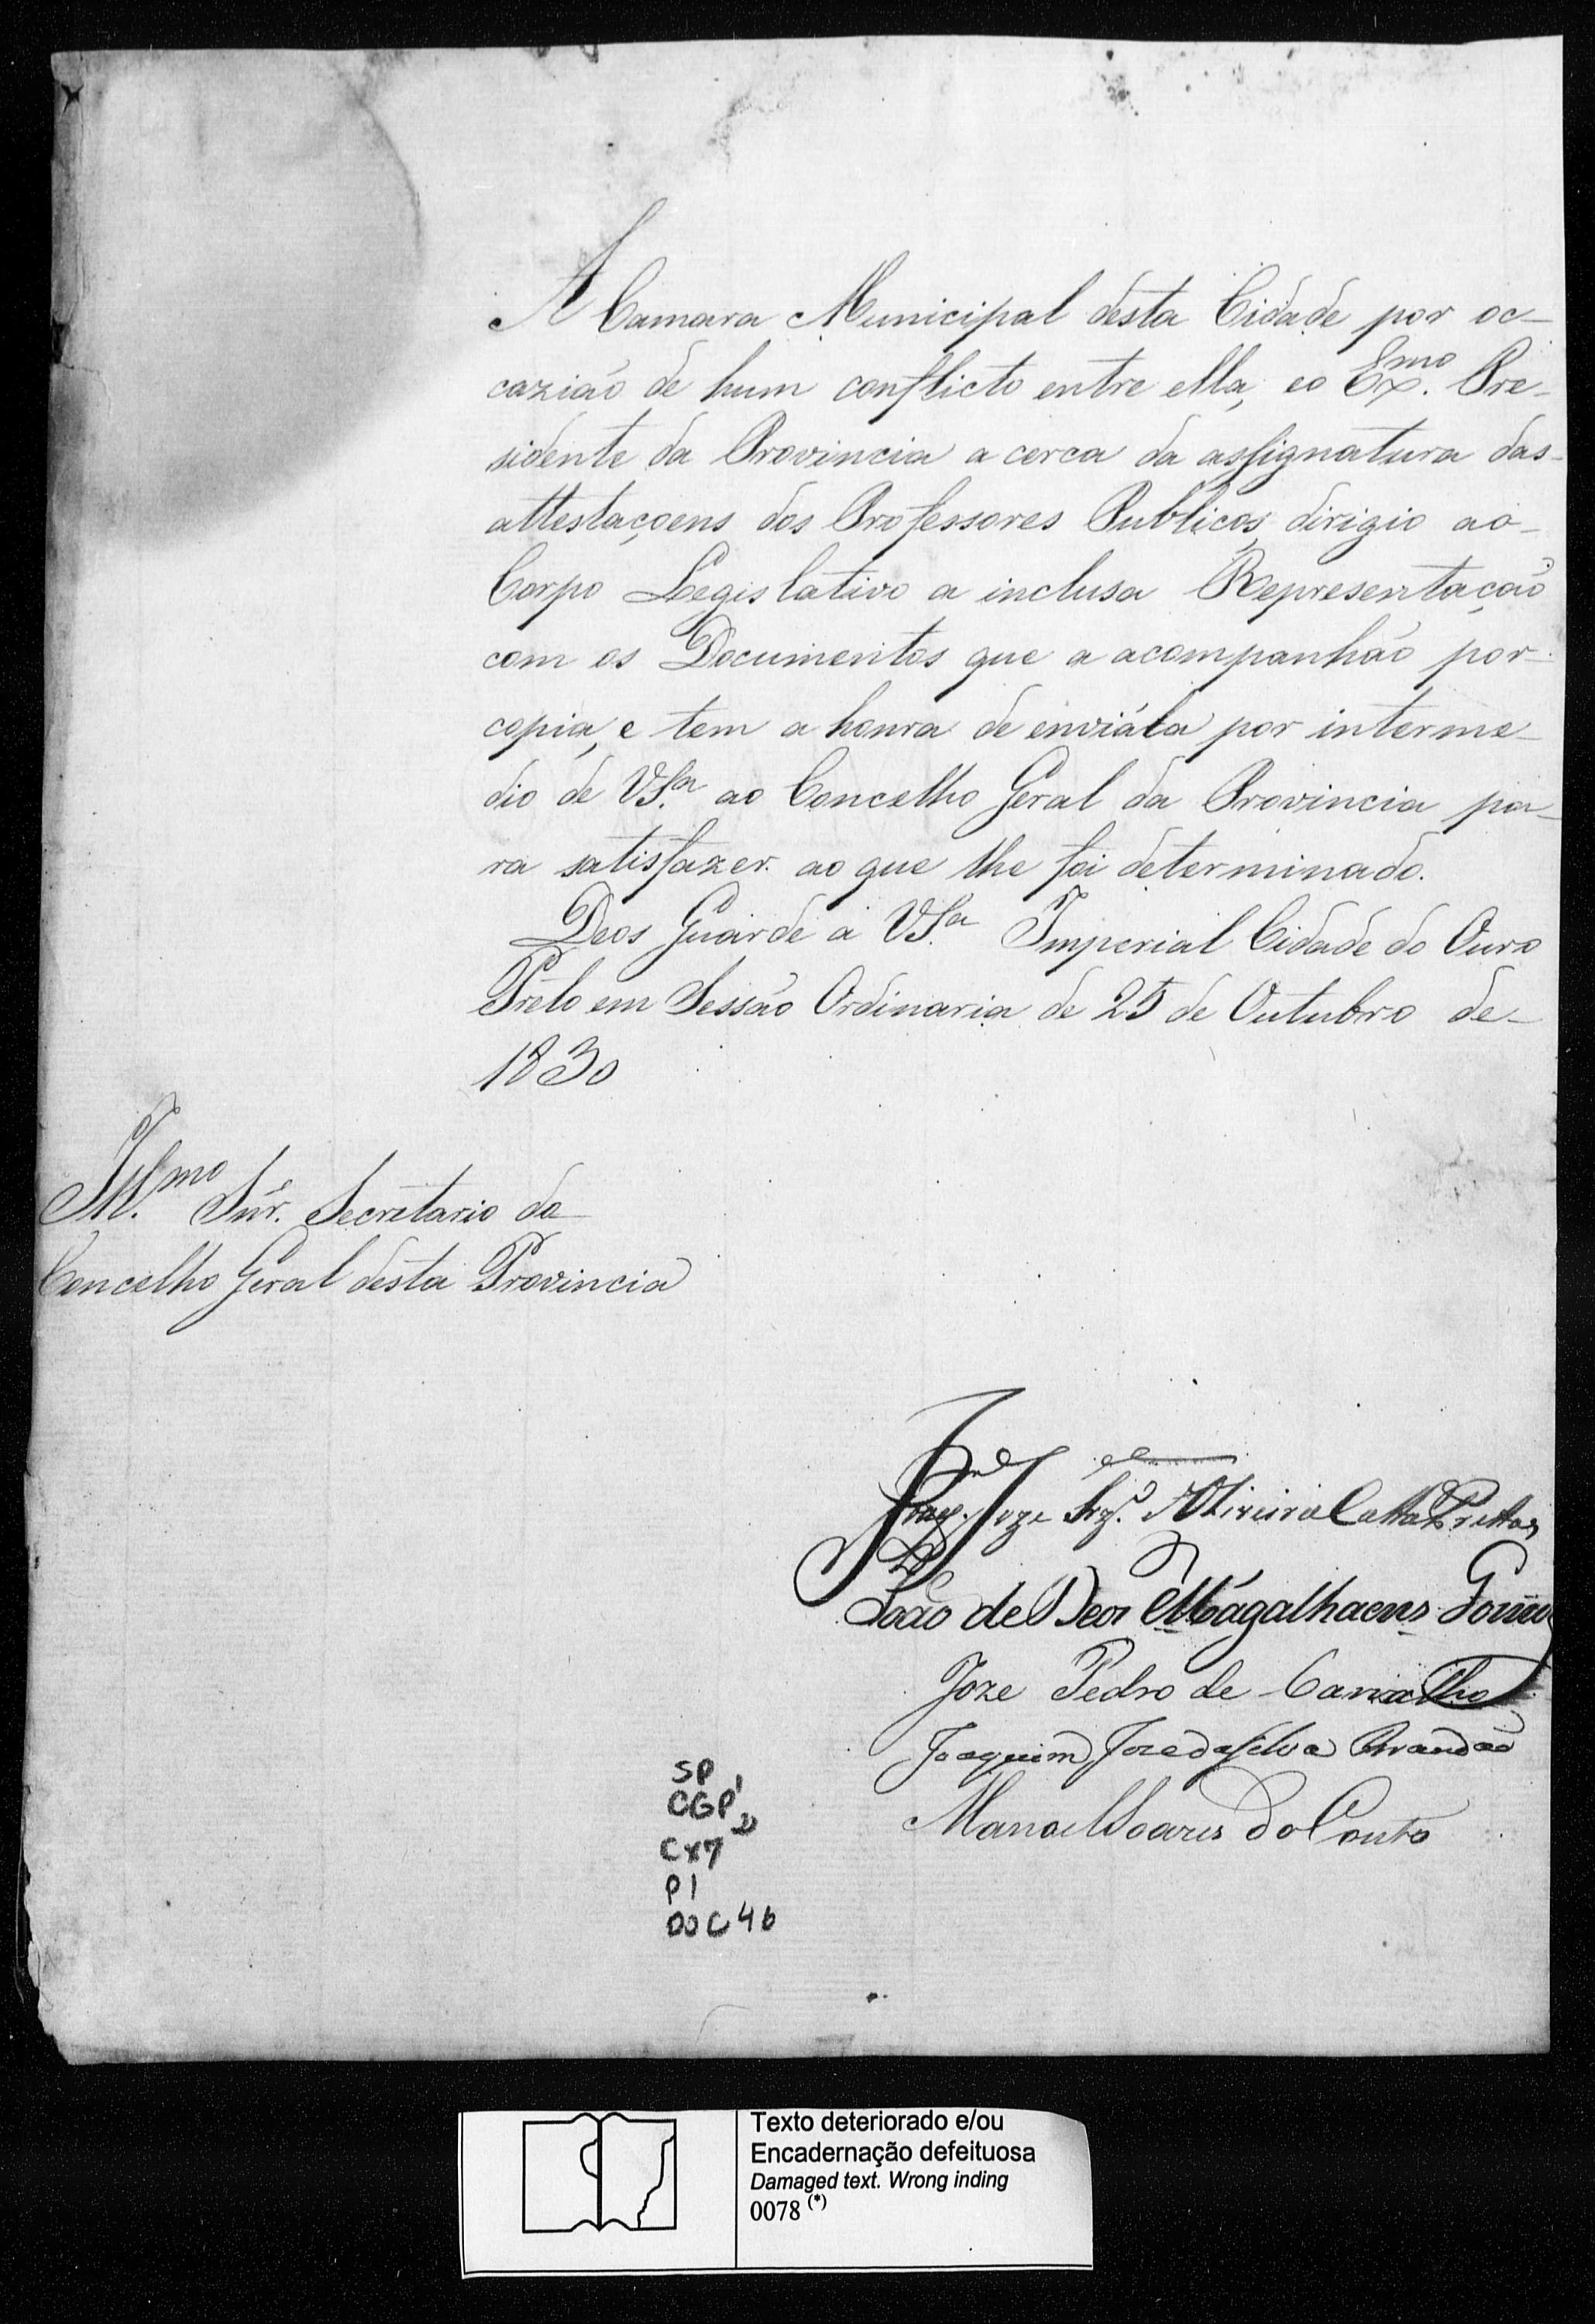 A Camara Municipal desta Cidade por oc-
cazião de hum conflicto entre ella, eo Ex.mo Pre-
sidente da Provincia a cerca da assignatura das
attestaçoens dos Professores Publicos, dirigio ao
Corpo Legislativo a inclusa Representação
com os Documentos que a acompanhão por
copia, e tem a honra de enviála por interme-
dio de VS.a ao Concelho Geral da Provincia pa-
ra satisfazer ao que lhe foi determinado.
Deos Guarde a VS.a Imperial Cidade do Ouro
Preto em Sessão Ordinaria de 25 de Outubro de
1830
Ill.mo Snr. Secretario do
Concelho Geral desta Provincia
Joze Oliveira Catta Prettas
João de Deos Magalhaens Gomes
Joze Pedro de Carvalho
Joaquim Joze da Silva Brandão
Manoel Soares do Couto
SP
CGP1
Cx7
P1
DOC 46
Texto deteriorado e/ou
Encadernação defeituosa
Damaged text. Wrong inding
0078 (*)